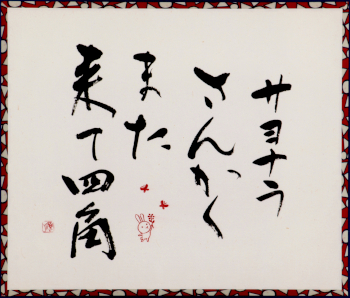 サヨナラ
さんかく
また
来て四角